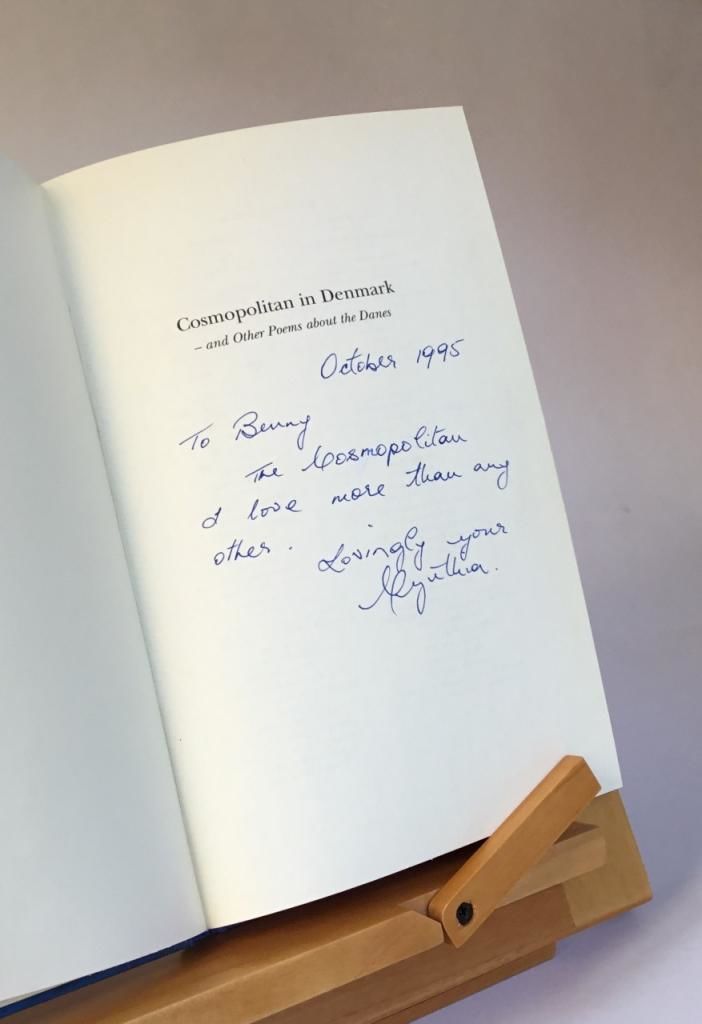 Cosmopolitan in Denmark
– and Other Poems about the Danes
October 1995
To Benny
The Cosmopolitan
I love more than any
other.
Lovingly your
Cynthia.